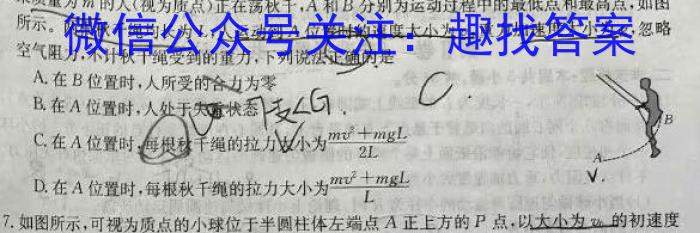 质量为m的人(视为质点)正在荡秋千,A和B分别为运动过程中的最低点和最高点,如图
所示。
忽略
微信公众号关注：趣找答案
空气阻力,不计秋千绳受到的重力,下列说法正确的是
A.在B位置时,人所受的合力为零
B.在A位置时,人处于失重状态
C.在A位置时,每根秋千绳的拉力大小为(mv²+mgL)/2L
D.在A位置时,每根秋千绳的拉力大小为(mv²+mgL)/L
C.
B
A
V.
7.如图所示,可视为质点的小球位于半圆柱体左端点A正上方的P点,以大小为v₀的初速度